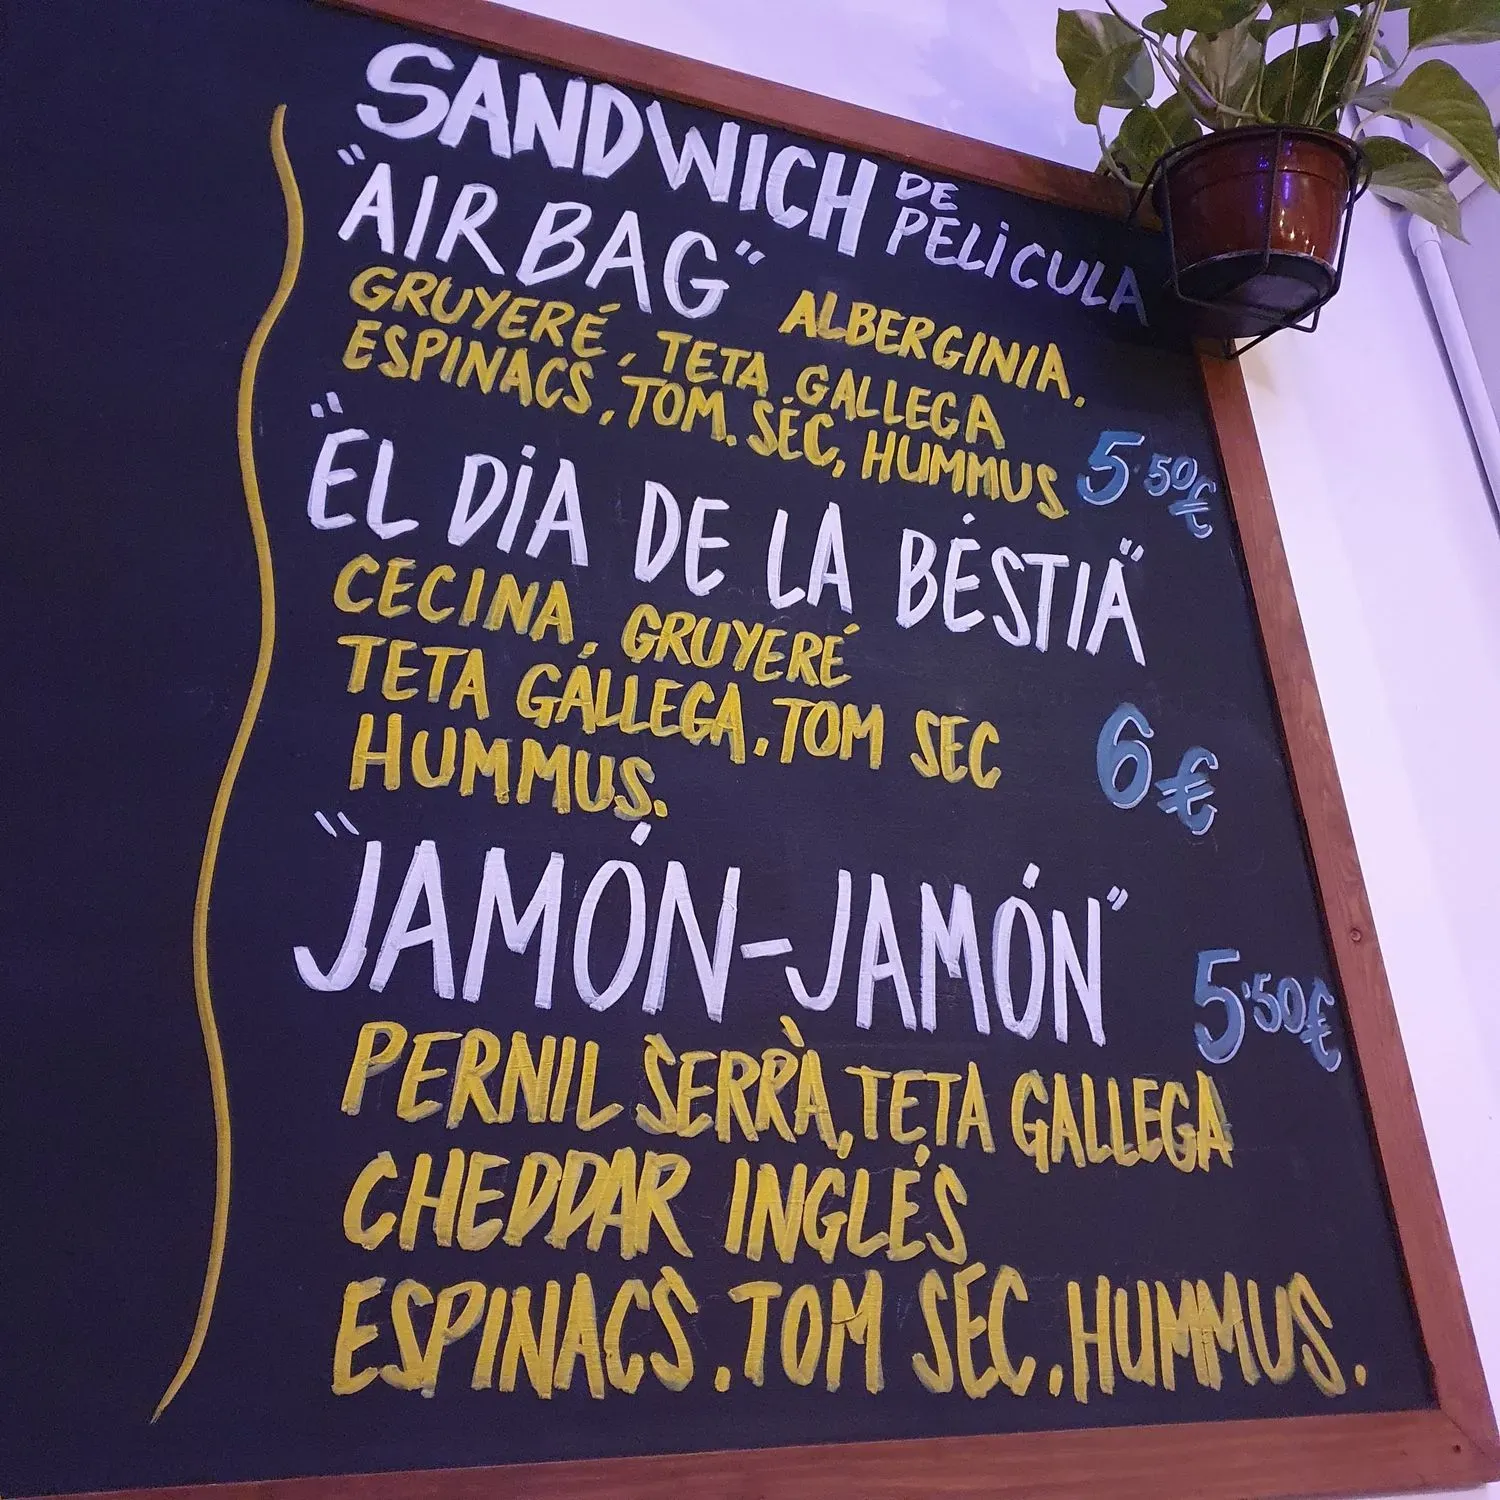 SANDWICH DE PELÍCULA
"AIRBAG" ALBERGINIA,
GRUYERÉ, TETA GALLEGA
ESPINACS, TOM. SÉC, HUMMUS 5'50€
"EL DÍA DE LA BÉSTIA"
CECINA, GRUYERÉ
TETA GALLEGA, TOM SEC
HUMMUS. 6€
"JAMÓN-JAMÓN"
5'50€
PERNIL SERRÀ, TETA GALLEGA
CHEDDAR INGLÉS
ESPINACS, TOM SÉC, HUMMUS.